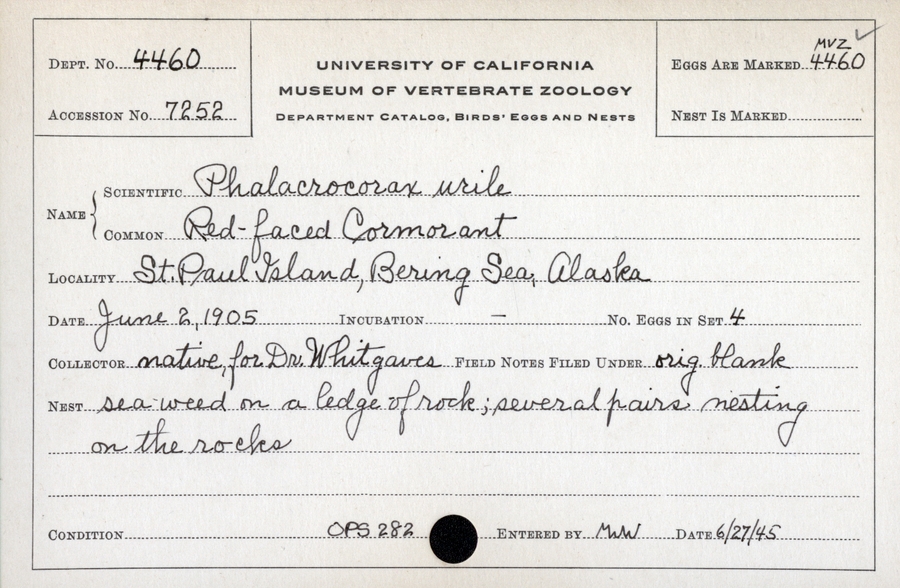 MVZ
DEPT. No. 4460
UNIVERSITY OF CALIFORNIA
EGGS ARE MARKED 4460
MUSEUM OF VERTEBRATE ZOOLOGY
ACCESSION No. 7252
DEPARTMENT CATALOG, BIRDS' EGGS AND NESTS
NEST IS MARKED
NAME
SCIENTIFIC Phalacrocorax urile
COMMON Red-faced Cormorant
LOCALITY St. Paul Island, Bering Sea, Alaska
DATE June 2, 1905 INCUBATION — No. EGGS IN SET 4
COLLECTOR native, for Dr. Whitgaves FIELD NOTES FILED UNDER orig. blank
NEST sea weed on a ledge of rock; several pairs nesting
on the rocks
CONDITION OPS 282 ENTERED BY MWW DATE 6/27/45